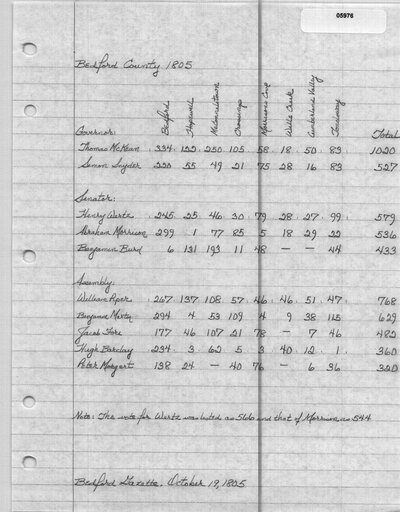 05976
Bedford County 1805
Governor: Bedford Hopewell McConnelstown Crossings Morrisons Cove Wills Creek Cumberland Valley Total
Thomas McKean 334 122 250 105 58 18 50 83 1020
Simon Snyder 220 55 49 21 75 28 16 83 527
Senator:
Henry Wertz 245 25 46 30 79 28 27 99 579
Abraham Morrison 299 1 77 85 5 18 29 22 536
Benjamin Burd 6 131 193 11 48 — — 44 433
Assembly:
William Piper 267 137 108 57 46 46 51 47 768
Benjamin Martin 294 4 53 109 4 9 38 115 629
Jacob Fore 177 46 107 21 78 — 7 46 482
Hugh Barclay 234 3 62 5 3 40 12 1 360
Peter Morgert 138 24 — 40 76 — 6 36 320
Note: The vote for Wertz was listed as 566 and that of Morrison as 544
Bedford Gazette. October 19, 1805